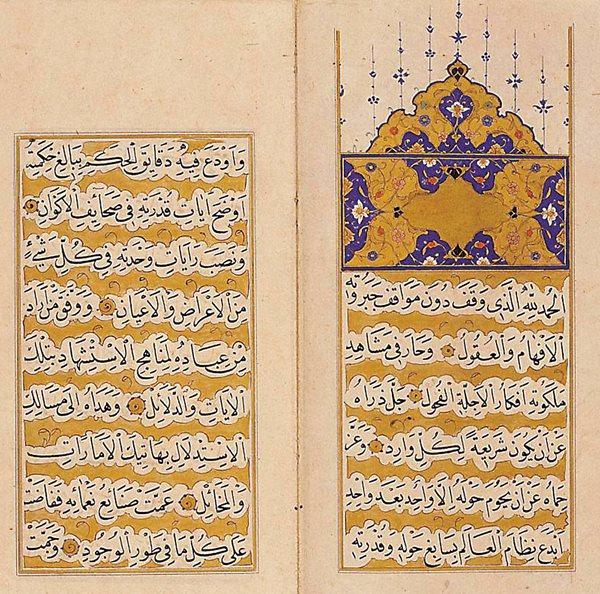 الحمد لله الذي وقف دون مواقف جبروته
الأفهام والعقول وحار في مشاهد
ملكوته أفكار الأجلة الفحول جل ذراه
عن أن يكون شريعة لكل وارد وعز
حماه عن أن يحوم حوله الا واحد بعد واحد
أبدع نظام العالم بسابغ حوله وقدرته
وأودع فيه دقايق الحكم ببالغ حكمته
أوضح آيات قدرته في صحايف الأكوان
ونصب رايات وحدته في كل شيء
من الأعراض والأعيان ووفق من أراد
من عباده لمناهج الاستشهاد بتلك
الآيات والدلائل وهداه إلى مسالك
الاستدلال بهاتيك الأمارات
والمخائل عمت صنائع نعمائه ففاضت
على كل ما في طور الوجود وجمت